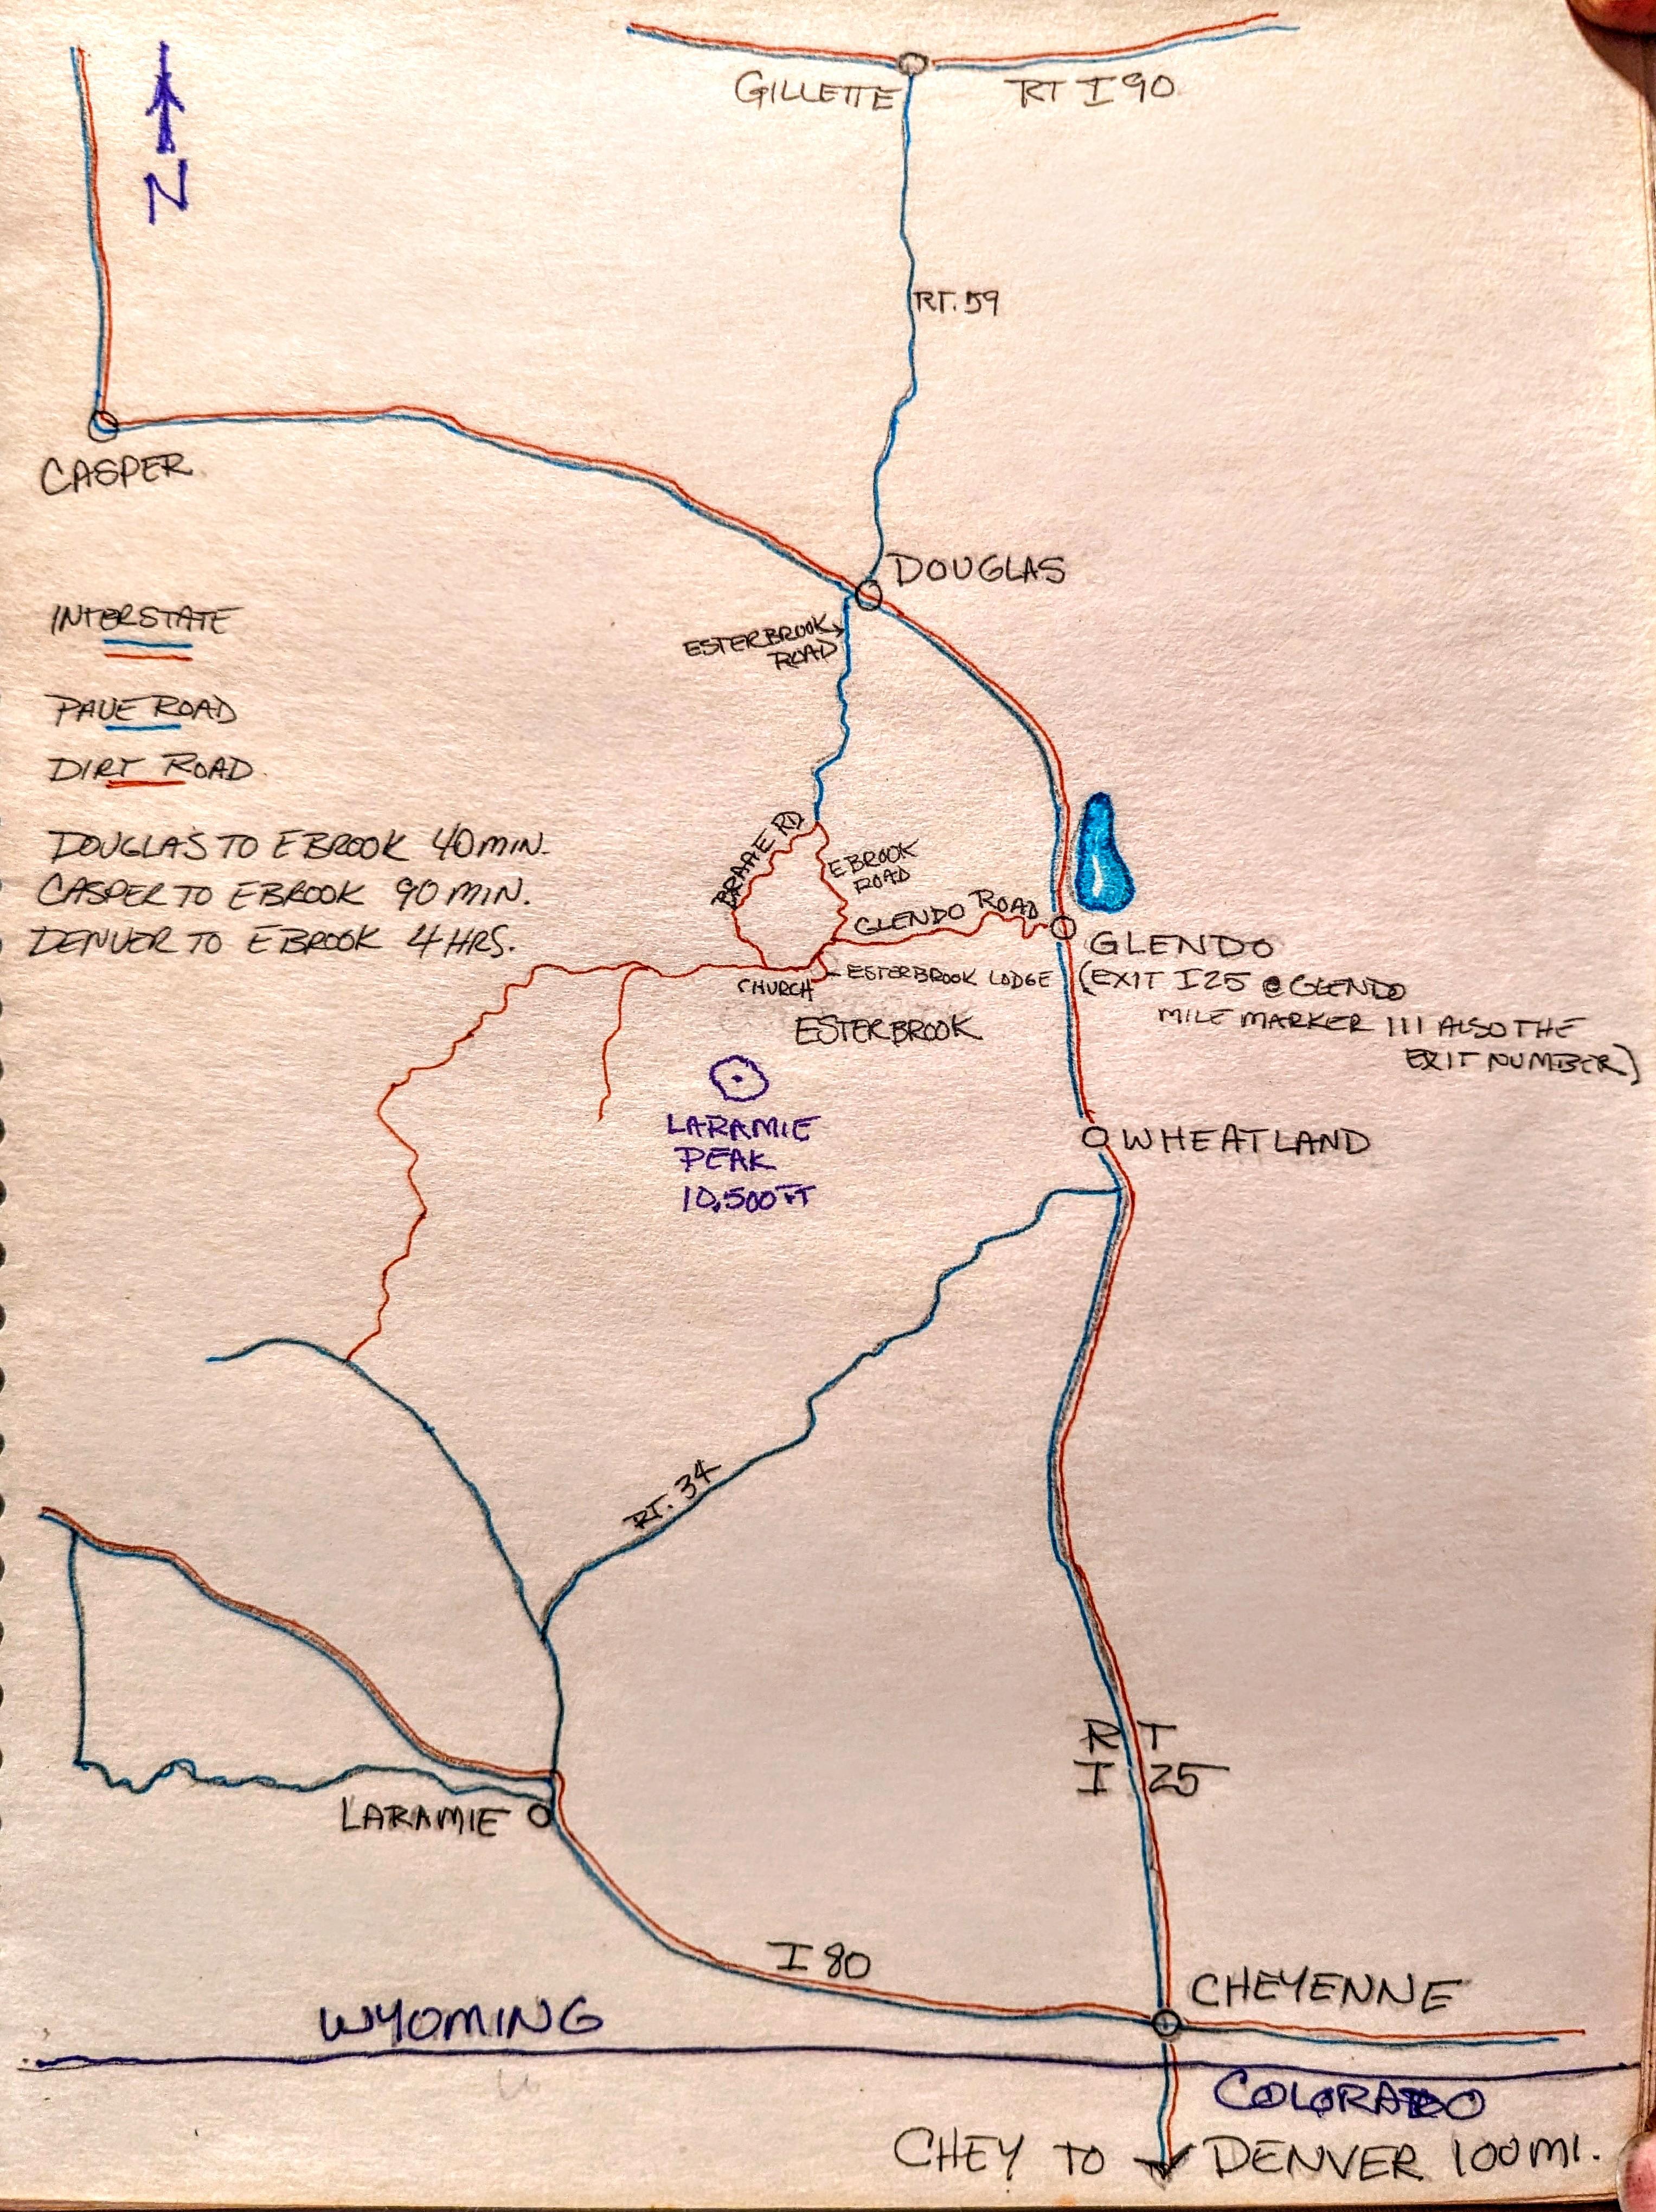 N
GILLETTE
RT I 90
RT. 59
CASPER
DOUGLAS
ESTERBROOK
ROAD
INTERSTATE
PAVE ROAD
DIRT ROAD
DOUGLAS TO EBROOK 40 MIN.
CASPER TO EBROOK 90 MIN.
DENVER TO EBROOK 4 HRS.
BRAAE RD
EBROOK
ROAD
GLENDO ROAD
GLENDO
(EXIT I25 @ GLENDO
MILE MARKER 111 ALSO THE
EXIT NUMBER)
ESTERBROOK LODGE
CHURCH
ESTERBROOK
LARAMIE
PEAK
10,500 FT
WHEATLAND
RT. 34
RT
I 25
LARAMIE
I 80
CHEYENNE
WYOMING
COLORADO
CHEY TO DENVER 100 MI.